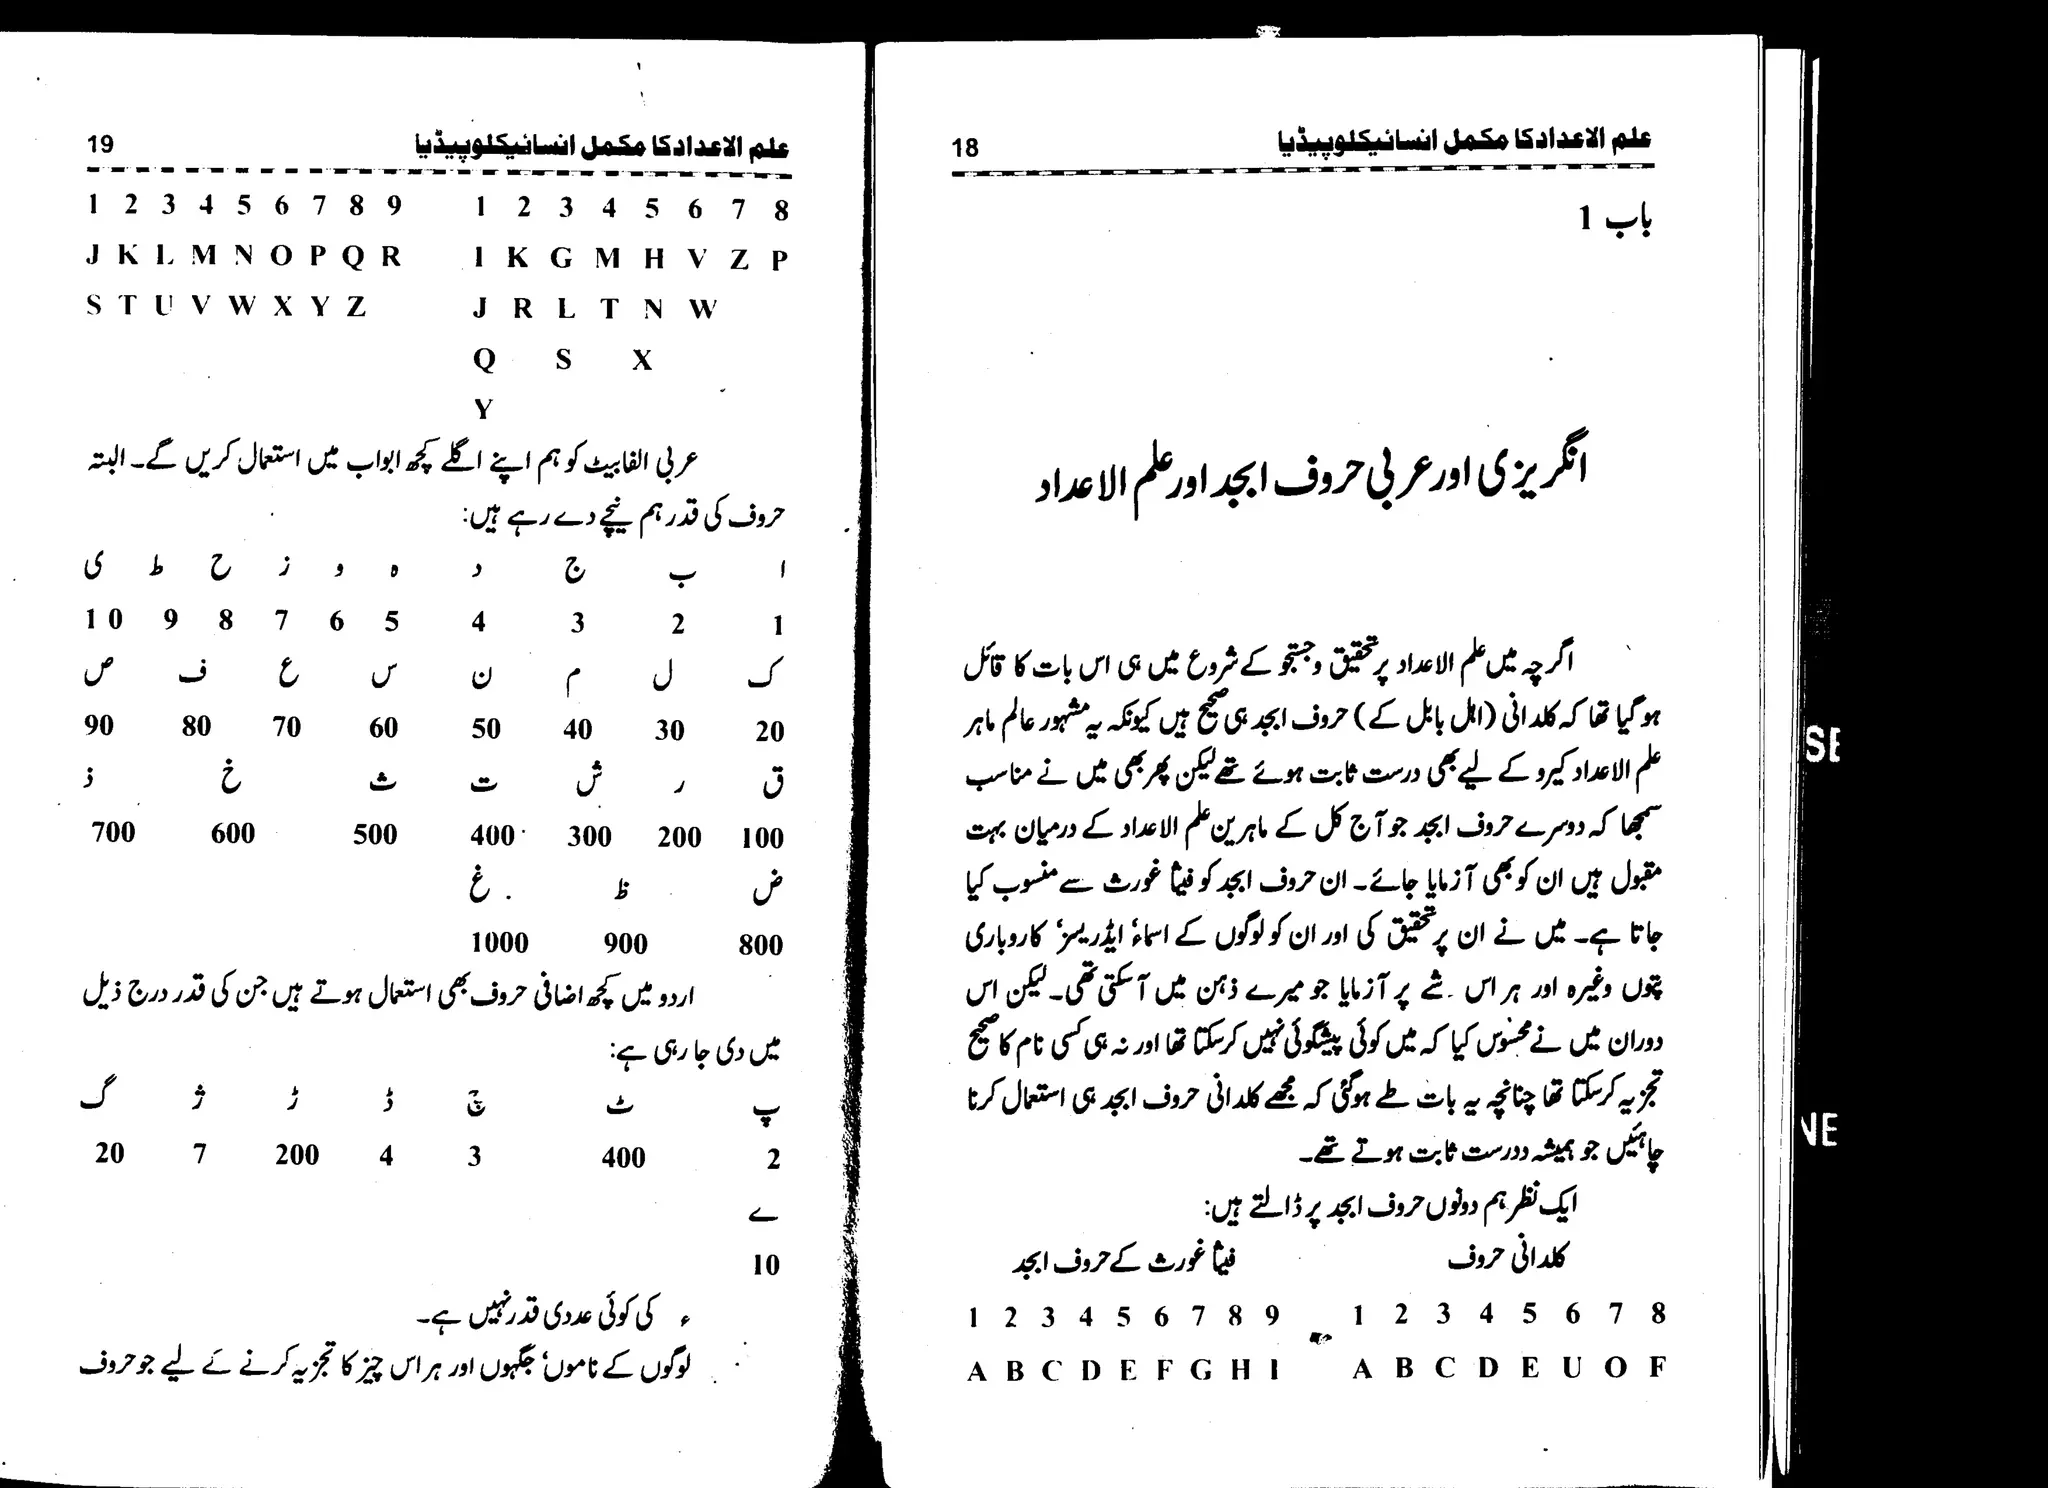 علم الاعداد کا مکمل انسائیکلوپیڈیا 18
باب 1
انگریزی اور عربی حروف ابجد اور علم الاعداد
اگرچہ میں علم الاعداد پر تحقیق وجستجو کے شروع میں ہی اس بات کا قائل
ہو گیا تھا کہ کلدانی (اہل بابل کے) حروف ابجد ہی صحیح ہیں کیونکہ یہ مشہور عالم ماہر
علم الاعداد کیرو کے لیے بھی درست ثابت ہوئے تھے لیکن پھر بھی میں نے مناسب
سمجھا کہ دوسرے حروف ابجد جو آج کل کے ماہرین علم الاعداد کے درمیان بہت
مقبول ہیں ان کو بھی آزمایا جائے۔ ان حروف ابجد کو فیثا غورث سے منسوب کیا
جاتا ہے۔ میں نے ان پر تحقیق کی اور ان کو لوگوں کے اسماء، ایڈریسز، کاروباری
پتوں وغیرہ اور ہر اس شے پر آزمایا جو میرے ذہن میں آ سکتی تھی۔ لیکن اس
دوران میں نے محسوس کیا کہ میں کوئی پیشگوئی نہیں کر سکتا تھا اور نہ ہی کسی نام کا صحیح
تجزیہ کر سکتا تھا چنانچہ یہ بات طے ہو گئی کہ مجھے کلدانی حروف ابجد ہی استعمال کرنا
چاہئیں جو ہمیشہ ددرست ثابت ہوتے تھے۔
ایک نظر ہم دونوں حروف ابجد پر ڈالتے ہیں:
کلدانی حروف فیثا غورث کے حروف ابجد
1 2 3 4 5 6 7 8 9 1 2 3 4 5 6 7 8
A B C D E F G H I A B C D E U O F
علم الاعداد کا مکمل انسائیکلوپیڈیا 19
1 2 3 4 5 6 7 8 9 1 2 3 4 5 6 7 8
J K L M N O P Q R I K G M H V Z P
S T U V W X Y Z J R L T N W
Q S X
Y
عربی الفابیٹ کو ہم اپنے اگلے کچھ ابواب میں استعمال کریں گے۔ البتہ
حروف کی قدر ہم نیچے دے رہے ہیں:
ا ب ج د ہ و ز ح ط ی
1 2 3 4 5 6 7 8 9 10
ک ل م ن س ع ف ص
20 30 40 50 60 70 80 90
ق ر ش ت ث خ ذ
100 200 300 400 500 600 700
ض ظ غ
800 900 1000
اردو میں کچھ اضافی حروف بھی استعمال ہوتے ہیں جن کی قدر درج ذیل
میں دی جا رہی ہے:
پ ٹ چ ڈ ڑ ژ گ
2 400 3 4 200 7 20
ے
10
ء کی کوئی عددی قدر نہیں ہے۔
لوگوں کے ناموں، جگہوں اور ہر اس چیز کا تجزیہ کرنے کے لیے جو حروف
SE
NE